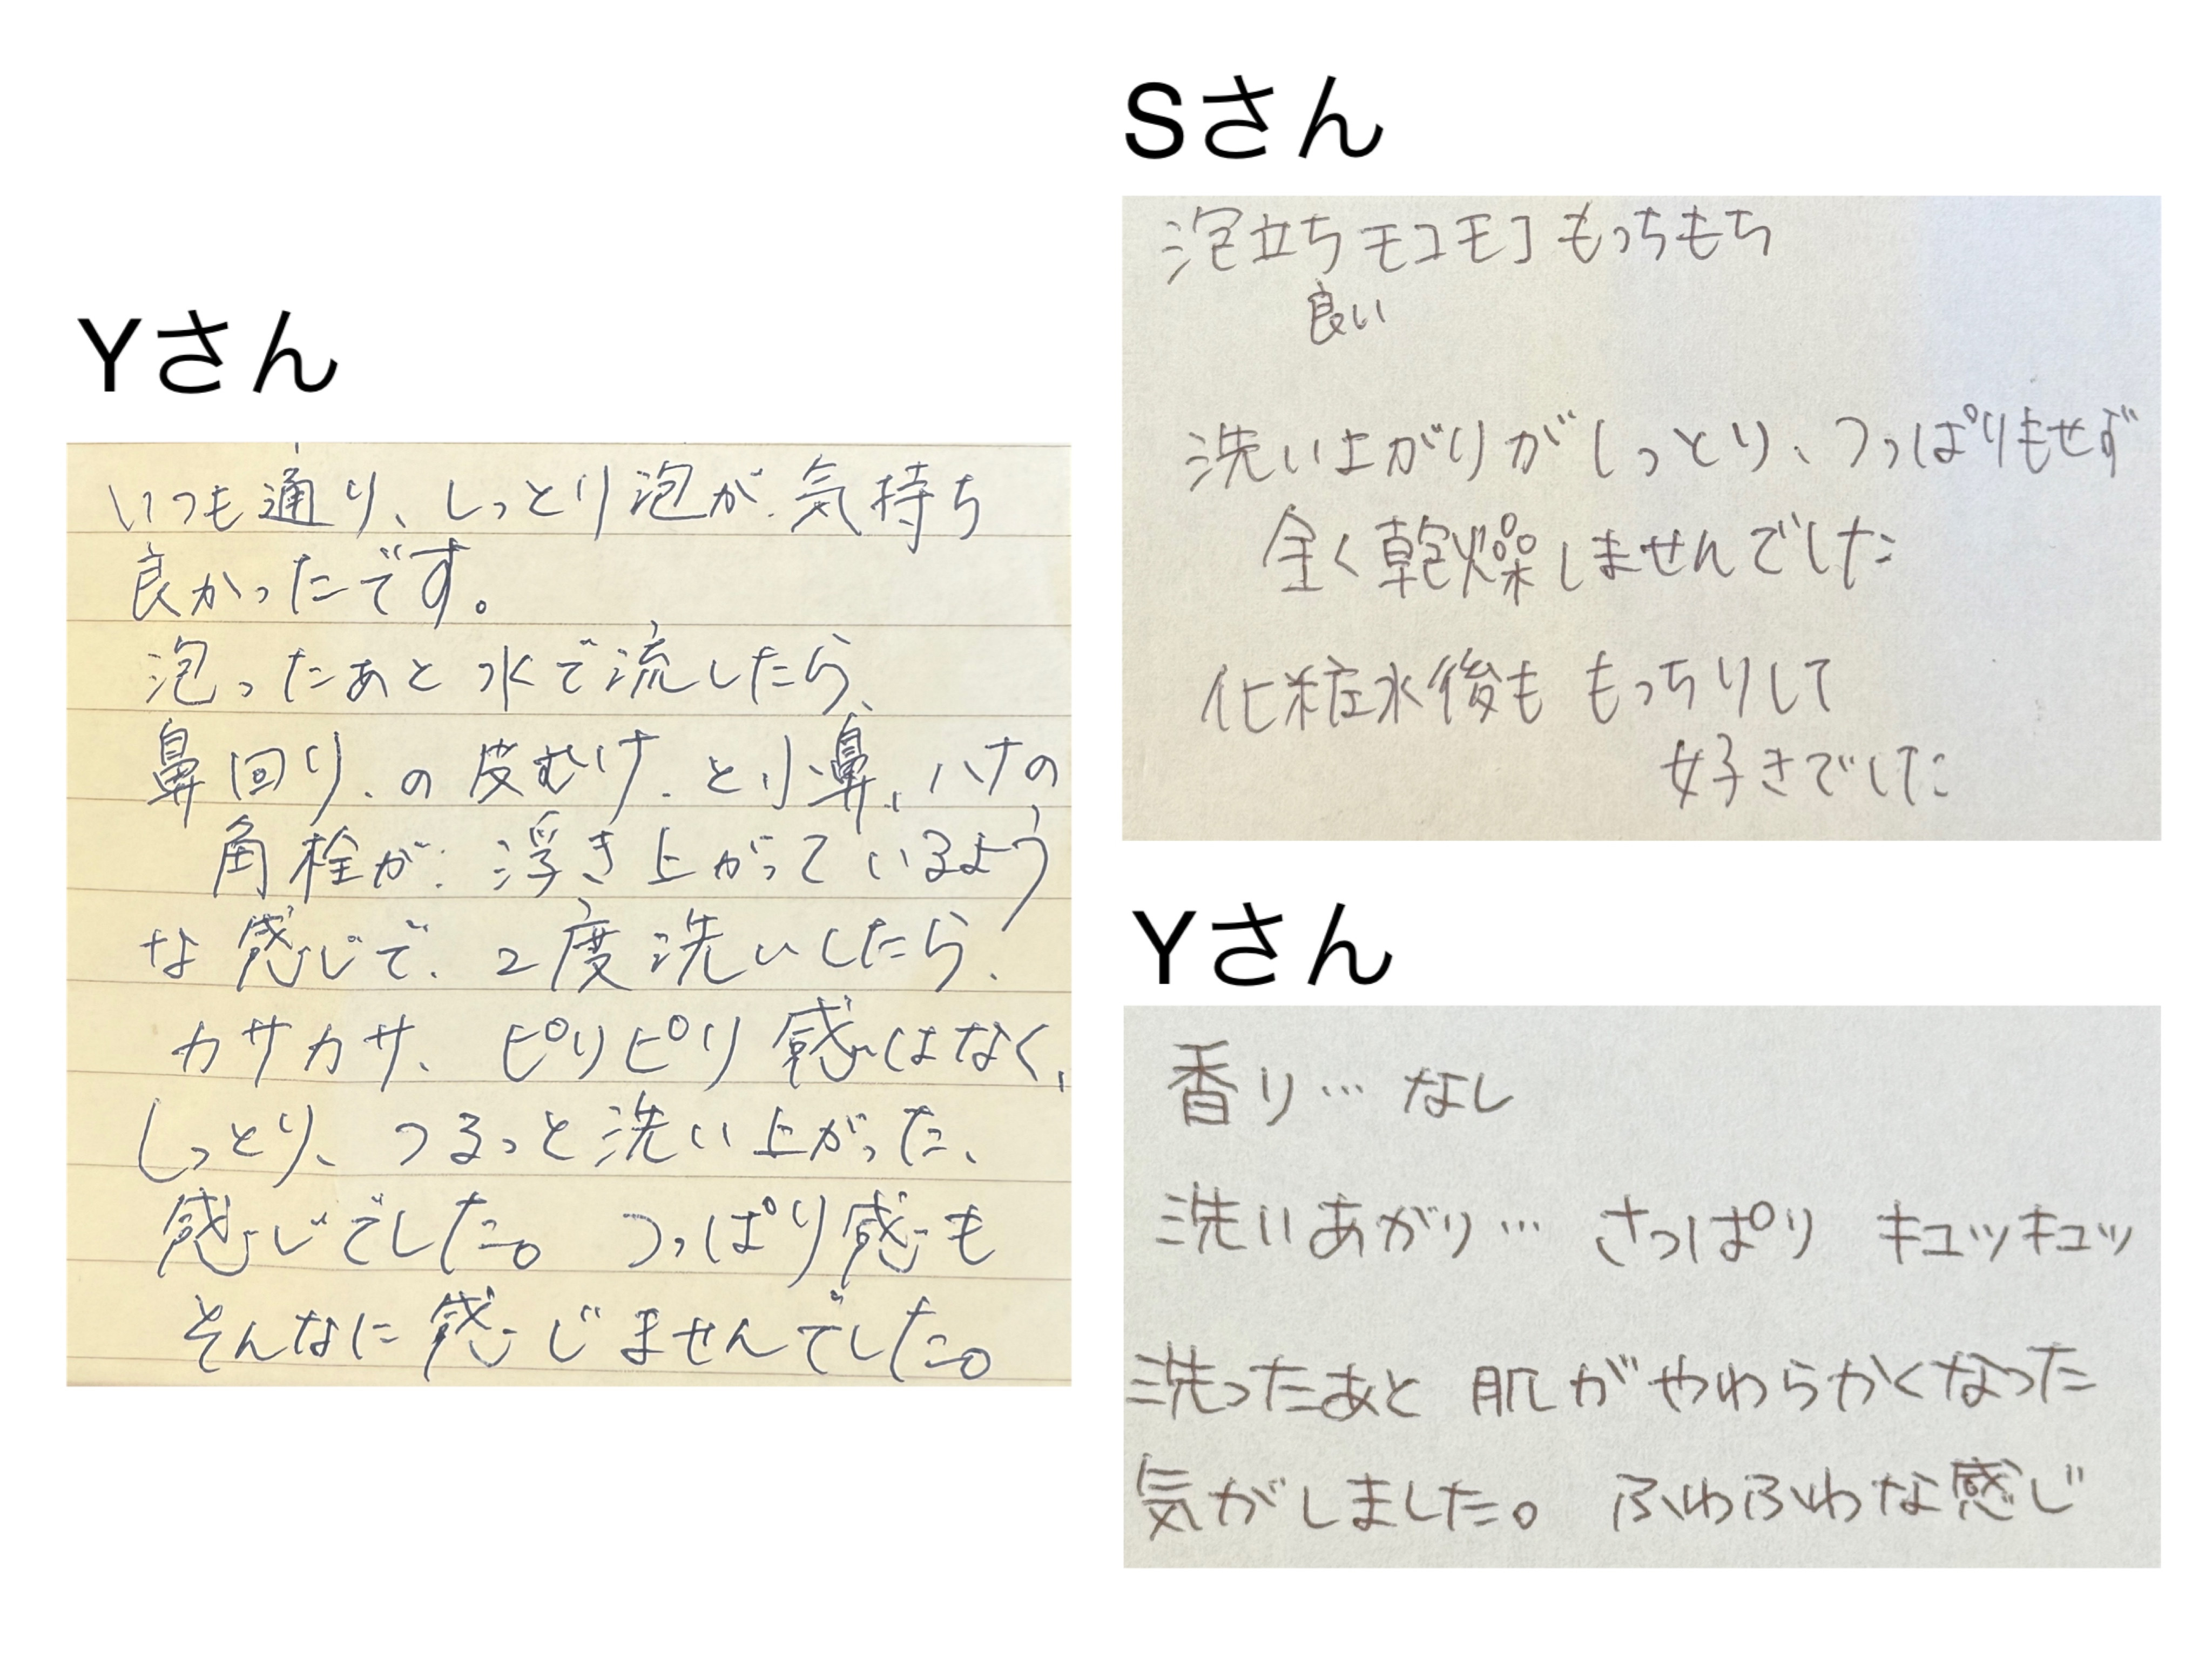 Yさん
いつも通り、しっとり泡が気持ち
良かったです。
泡ったあと水で流したら、
鼻回り、の皮むけ、と小鼻、ハナの
角栓が、浮き上がっているよう
な感じで、2度洗いしたら、
カサカサ、ピリピリ感はなく、
しっとり、つるっと洗い上がった、
感じでした。つっぱり感も
そんなに感じませんでした。
Sさん
泡立ちモコモコもっちもち
良い
洗い上がりがしっとり、つっぱりもせず
全く乾燥しませんでした
化粧水後ももっちりして
好きでした
Yさん
香り…なし
洗いあがり…さっぱり キュッキュッ
洗ったあと肌がやわらかくなった
気がしました。ふわふわな感じ